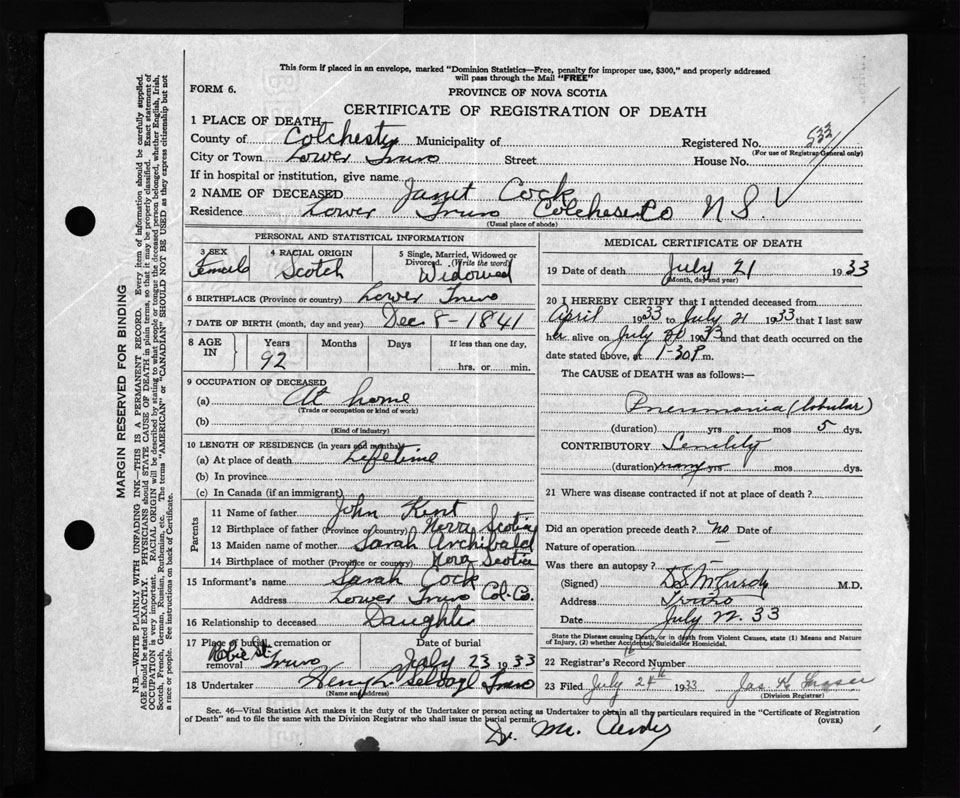 This form if placed in an envelope, marked "Dominion Statistics—Free, penalty for improper use, $300," and properly addressed
will pass through the Mail "FREE"
FORM 6.
PROVINCE OF NOVA SCOTIA
CERTIFICATE OF REGISTRATION OF DEATH
1 PLACE OF DEATH
County of Colchester Municipality of Registered No. 533
(For use of Registrar General only)
City or Town Lower Truro Street House No.
If in hospital or institution, give name
2 NAME OF DECEASED Janet Cock
Residence Lower Truro Colchester Co N S.
(Usual place of abode)
PERSONAL AND STATISTICAL INFORMATION
3 SEX Female
4 RACIAL ORIGIN Scotch
5 Single, Married, Widowed or
Divorced. (Write the word)
Widowed
6 BIRTHPLACE (Province or country) Lower Truro
7 DATE OF BIRTH (month, day and year) Dec 8-1841
8 AGE IN Years Months Days If less than one day,
92 hrs. or min.
9 OCCUPATION OF DECEASED
(a) At home
(Trade or occupation or kind of work)
(b)
(Kind of industry)
10 LENGTH OF RESIDENCE (in years and months)
(a) At place of death Lifetime
(b) In province
(c) In Canada (if an immigrant)
Parents
11 Name of father John Kent
12 Birthplace of father (Province or country) Nova Scotia
13 Maiden name of mother Sarah Archibald
14 Birthplace of mother (Province or country) Nova Scotia
15 Informant's name Sarah Cock
Address Lower Truro Col-Co.
16 Relationship to deceased Daughter
17 Place of burial, cremation or
removal Robie St. Truro
Date of burial
July 23 1933
18 Undertaker Truro
(Name and address)
MEDICAL CERTIFICATE OF DEATH
19 Date of death July 21 1933
(Month, day and year)
20 I HEREBY CERTIFY that I attended deceased from
April 1933 to July 21 1933 that I last saw
her alive on July 20 1933 and that death occurred on the
date stated above, at 1-30 P m.
The CAUSE OF DEATH was as follows:—
Pneumonia (lobular)
(duration) yrs mos 5 dys.
CONTRIBUTORY Senility
(duration) many yrs mos dys.
21 Where was disease contracted if not at place of death?
Did an operation precede death? no Date of
Nature of operation —
Was there an autopsy? —
(Signed) M.D.
Address Truro
Date July 22. 33
State the Disease causing Death, or in death from Violent Causes, state (1) Means and Nature
of Injury, (2) whether Accidental, Suicidal or Homicidal.
22 Registrar's Record Number
23 Filed July 24th 1933 Jas
(Division Registrar)
Sec. 46—Vital Statistics Act makes it the duty of the Undertaker or person acting as Undertaker to obtain all the particulars required in the "Certificate of Registration
of Death" and to file the same with the Division Registrar who shall issue the burial permit.
(OVER)
Dr. Mc Curdy
MARGIN RESERVED FOR BINDING
N.B.—WRITE PLAINLY WITH UNFADING INK—THIS IS A PERMANENT RECORD. Every item of information should be carefully supplied.
AGE should be stated EXACTLY. PHYSICIANS should STATE CAUSE OF DEATH in plain terms, so that it may be properly classified. Exact statement of
OCCUPATION is very important. RACIAL ORIGIN will be described by stating to what people or tongue the deceased person belonged, whether English, Irish,
Scotch, French, German, Russian, Ruthenian, etc. The terms "AMERICAN" or "CANADIAN" SHOULD NOT BE USED as they express citizenship but not
a race or people. See instructions on back of Certificate.